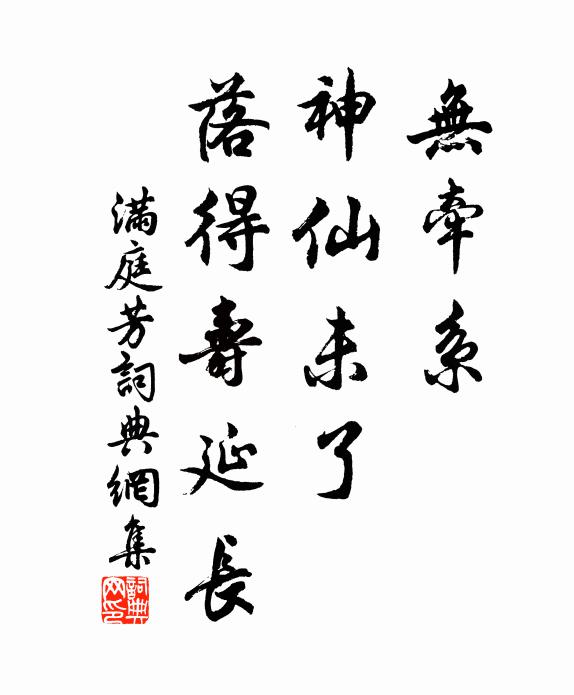 無牽系
神仙未了
落得壽延長
滿庭芳詞典網集
詞典网印